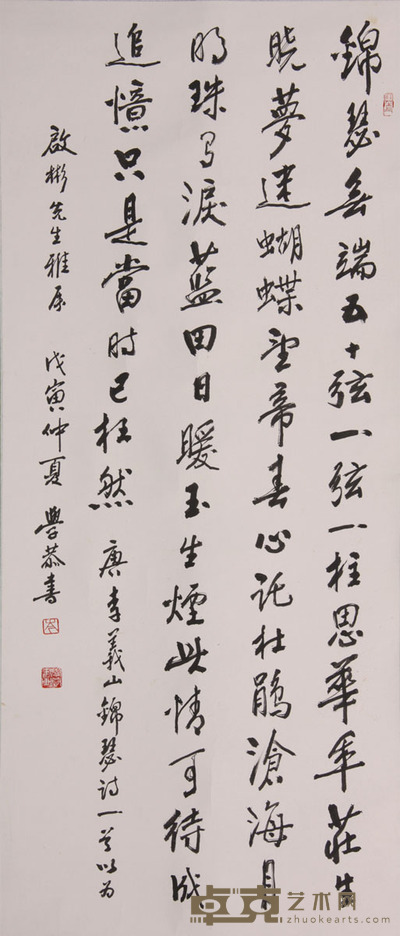 錦瑟無端五十弦一弦一柱思華年莊生
曉夢迷蝴蝶望帝春心託杜鵑滄海月
明珠有淚藍田日暖玉生煙此情可待成
追憶只是當時已枉然 唐李義山錦瑟詩一首以为
啟彬先生雅屬 戊寅仲夏 學恭書
岑
卓克艺术网
zhuokearts.com